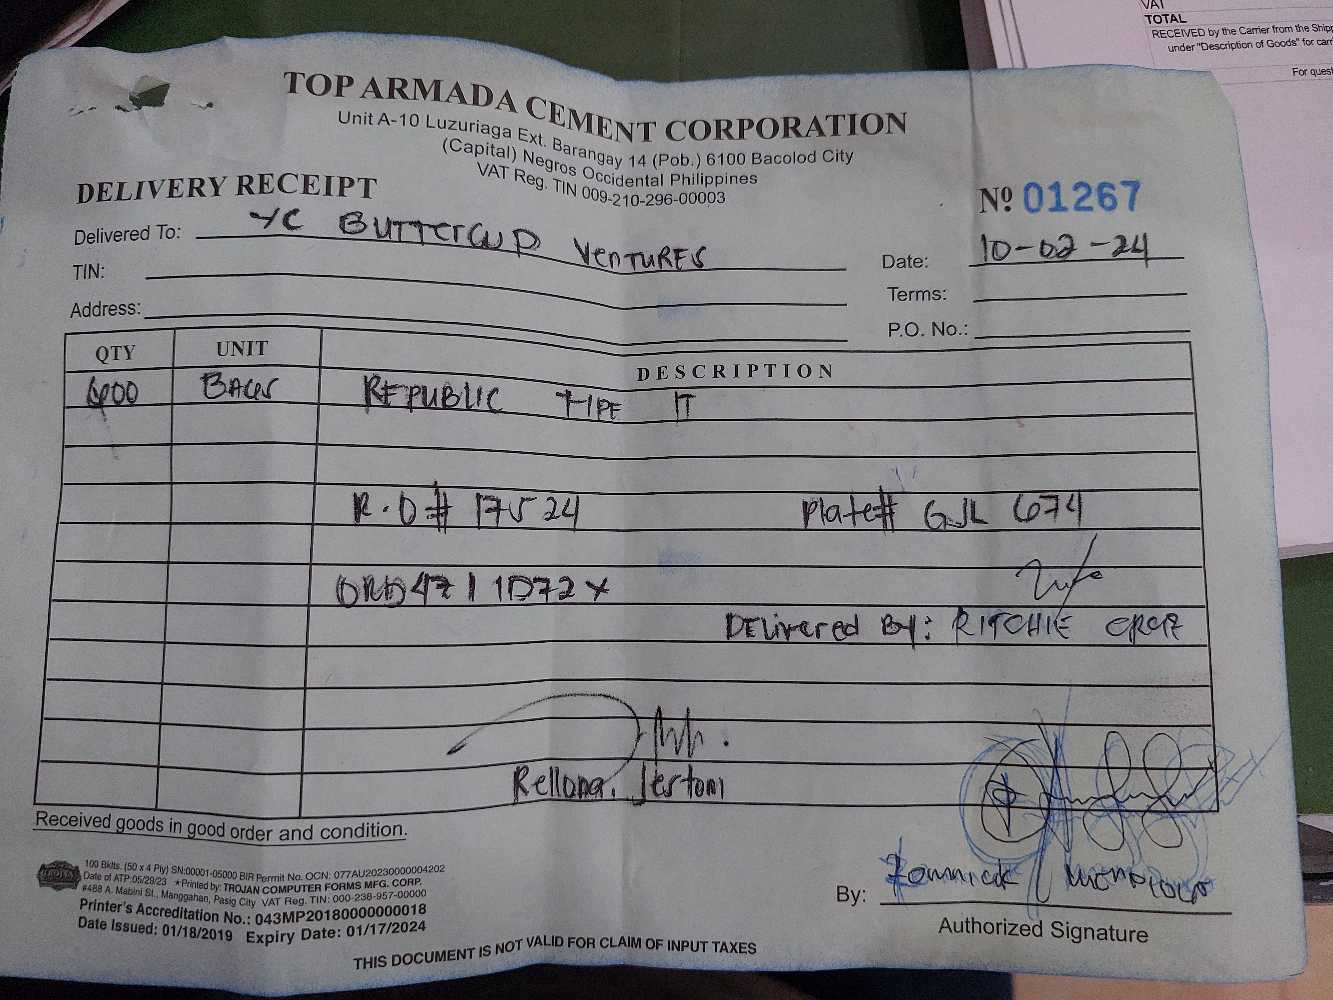 VAT
TOTAL
RECEIVED by the Carrier from the Shipp
under "Description of Goods" for carr
For quest
TOP ARMADA CEMENT CORPORATION
Unit A-10 Luzuriaga Ext. Barangay 14 (Pob.) 6100 Bacolod City
(Capital) Negros Occidental Philippines
VAT Reg. TIN 009-210-296-00003
DELIVERY RECEIPT
Nº 01267
Delivered To: YC BUTTERCUP VENTURES
Date: 10-02-24
TIN:
Terms:
Address:
P.O. No.:
QTY UNIT DESCRIPTION
600 BAGS REPUBLIC TYPE IT
R.O# 17524 Plate# GJL 674
DELivered By: RITCHIE
Rellona, Jestoni
Received goods in good order and condition.
100 Bklts. (50 x 4 Ply) SN:00001-05000 BIR Permit No. OCN: 077AU20230000004202
Date of ATP:05/29/23 ★Printed by: TROJAN COMPUTER FORMS MFG. CORP.
#48B A. Mabini St., Manggahan, Pasig City VAT Reg. TIN: 000-238-957-00000
Printer's Accreditation No.: 043MP20180000000018
Date Issued: 01/18/2019 Expiry Date: 01/17/2024
By:
Authorized Signature
THIS DOCUMENT IS NOT VALID FOR CLAIM OF INPUT TAXES